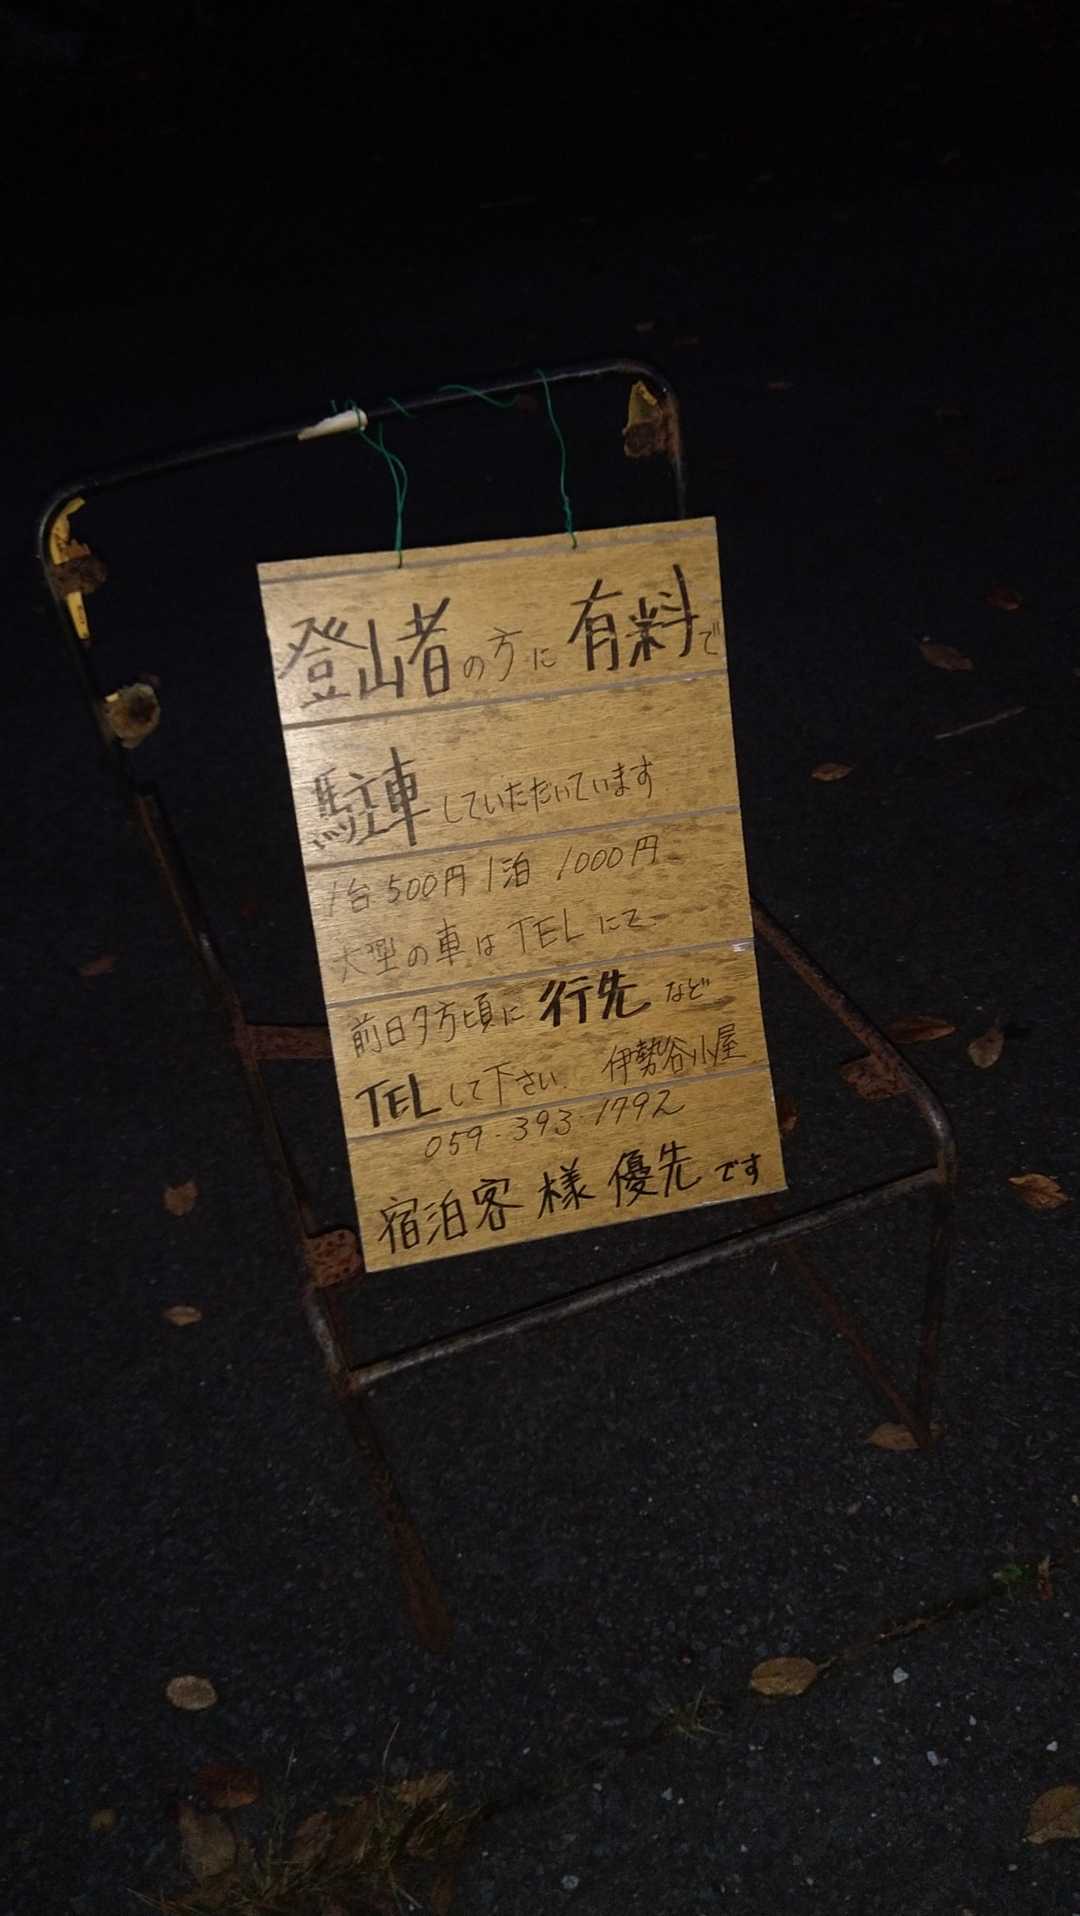 登山者の方に有料で
駐車していただいています
1台500円 1泊 1000円
大型の車はTELにて
前日夕方頃に行先など
TELして下さい. 伊勢谷小屋
059-393-1792
宿泊客様優先です